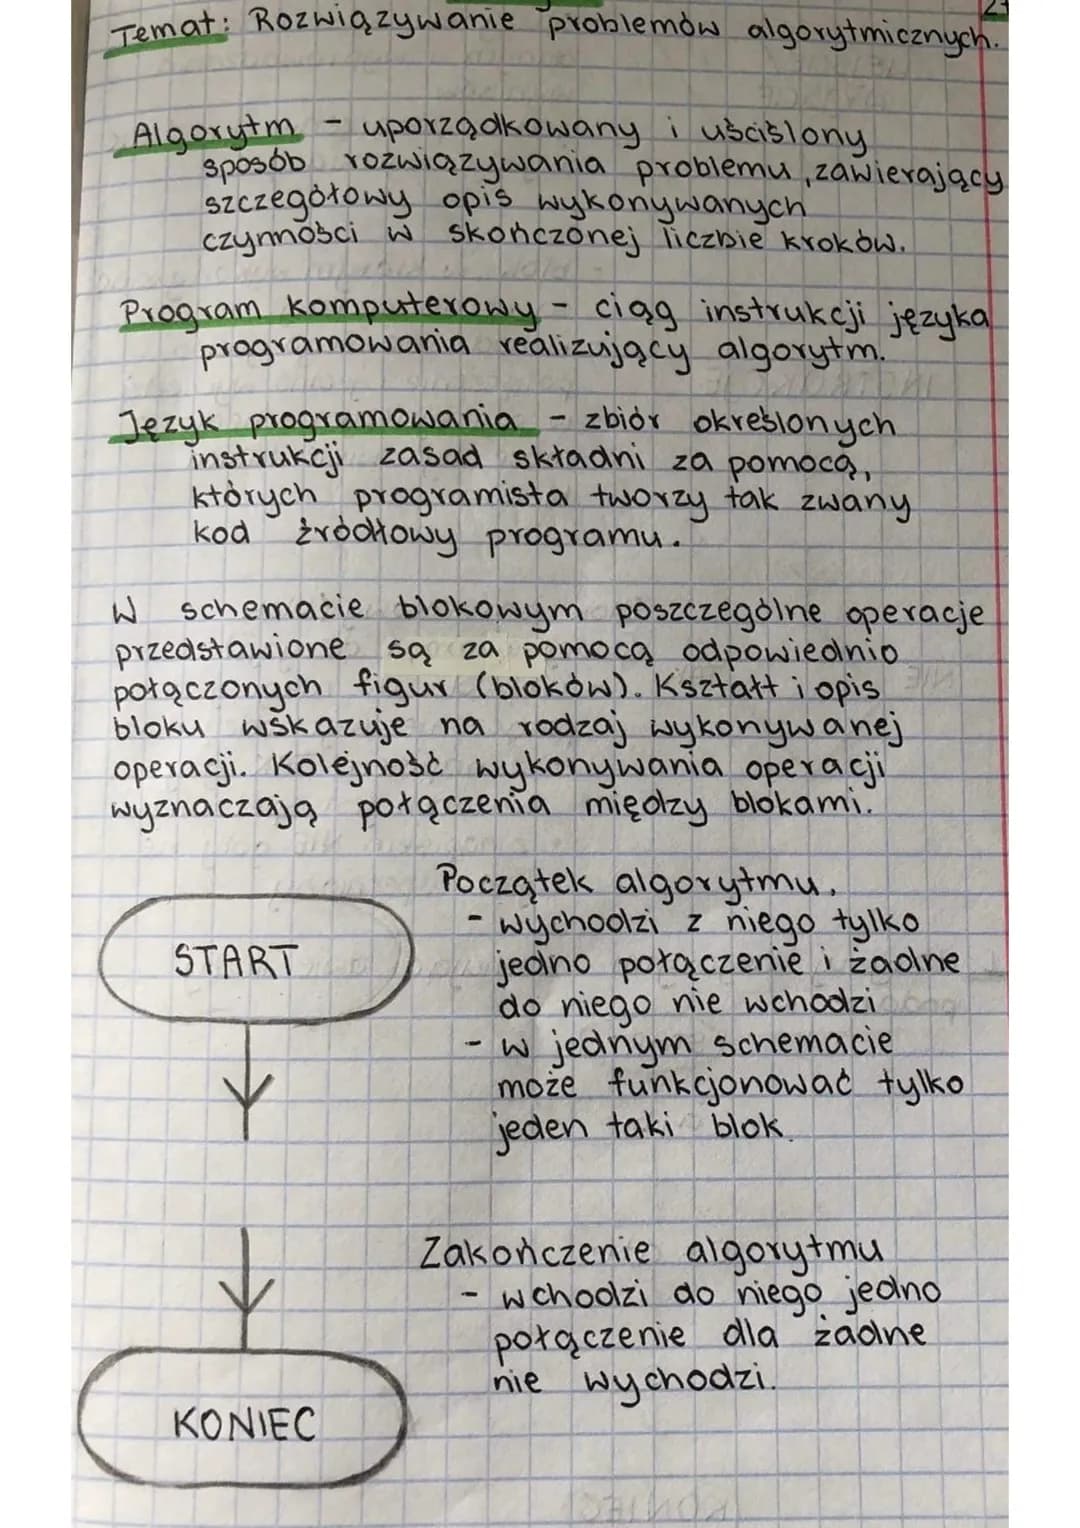 Temat: Rozwiązywanie problemów algorytmicznych.
Algorytm - uporządkowany i uściślony
sposób rozwiązywania problemu, zawierający
szczegółowy opis wykonywanych
czynności w skończonej liczbie kroków.
Program komputerowy - ciąg instrukcji języka
programowania realizujący algorytm.
Język programowania - zbiór określonych
instrukcji zasad składni za pomocą,
których programista tworzy tak zwany
kod źródłowy programu.
W schemacie blokowym poszczególne operacje
przedstawione są za pomocą odpowiednio
połączonych figur (bloków). Kształt i opis
bloku wskazuje na rodzaj wykonywanej
operacji. Kolejność wykonywania operacji
wyznaczają połączenia między blokami.
Początek algorytmu.
- wychodzi z niego tylko
START
jedno połączenie i żadne
do niego nie wchodzi
- w jednym schemacie
może funkcjonować tylko
jeden taki blok
Zakończenie algorytmu
- wchodzi do niego jedno
połączenie dla żadne
nie wychodzi.
KONIEC